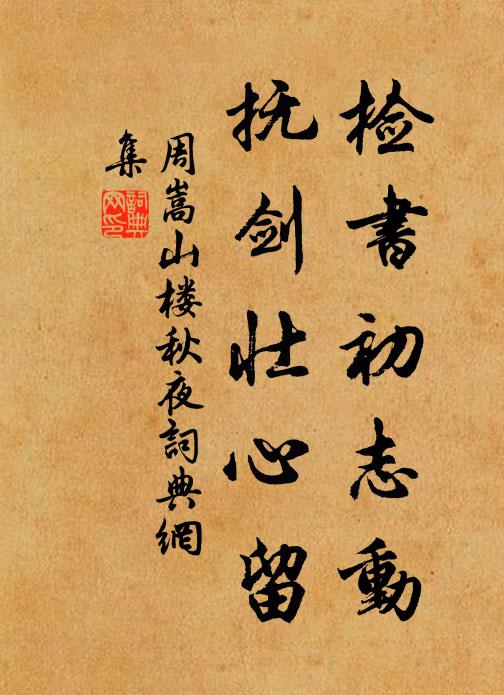 检書初志動
抚剑壮心留
周嵩山楼秋夜詞典網
集
詞典
网印